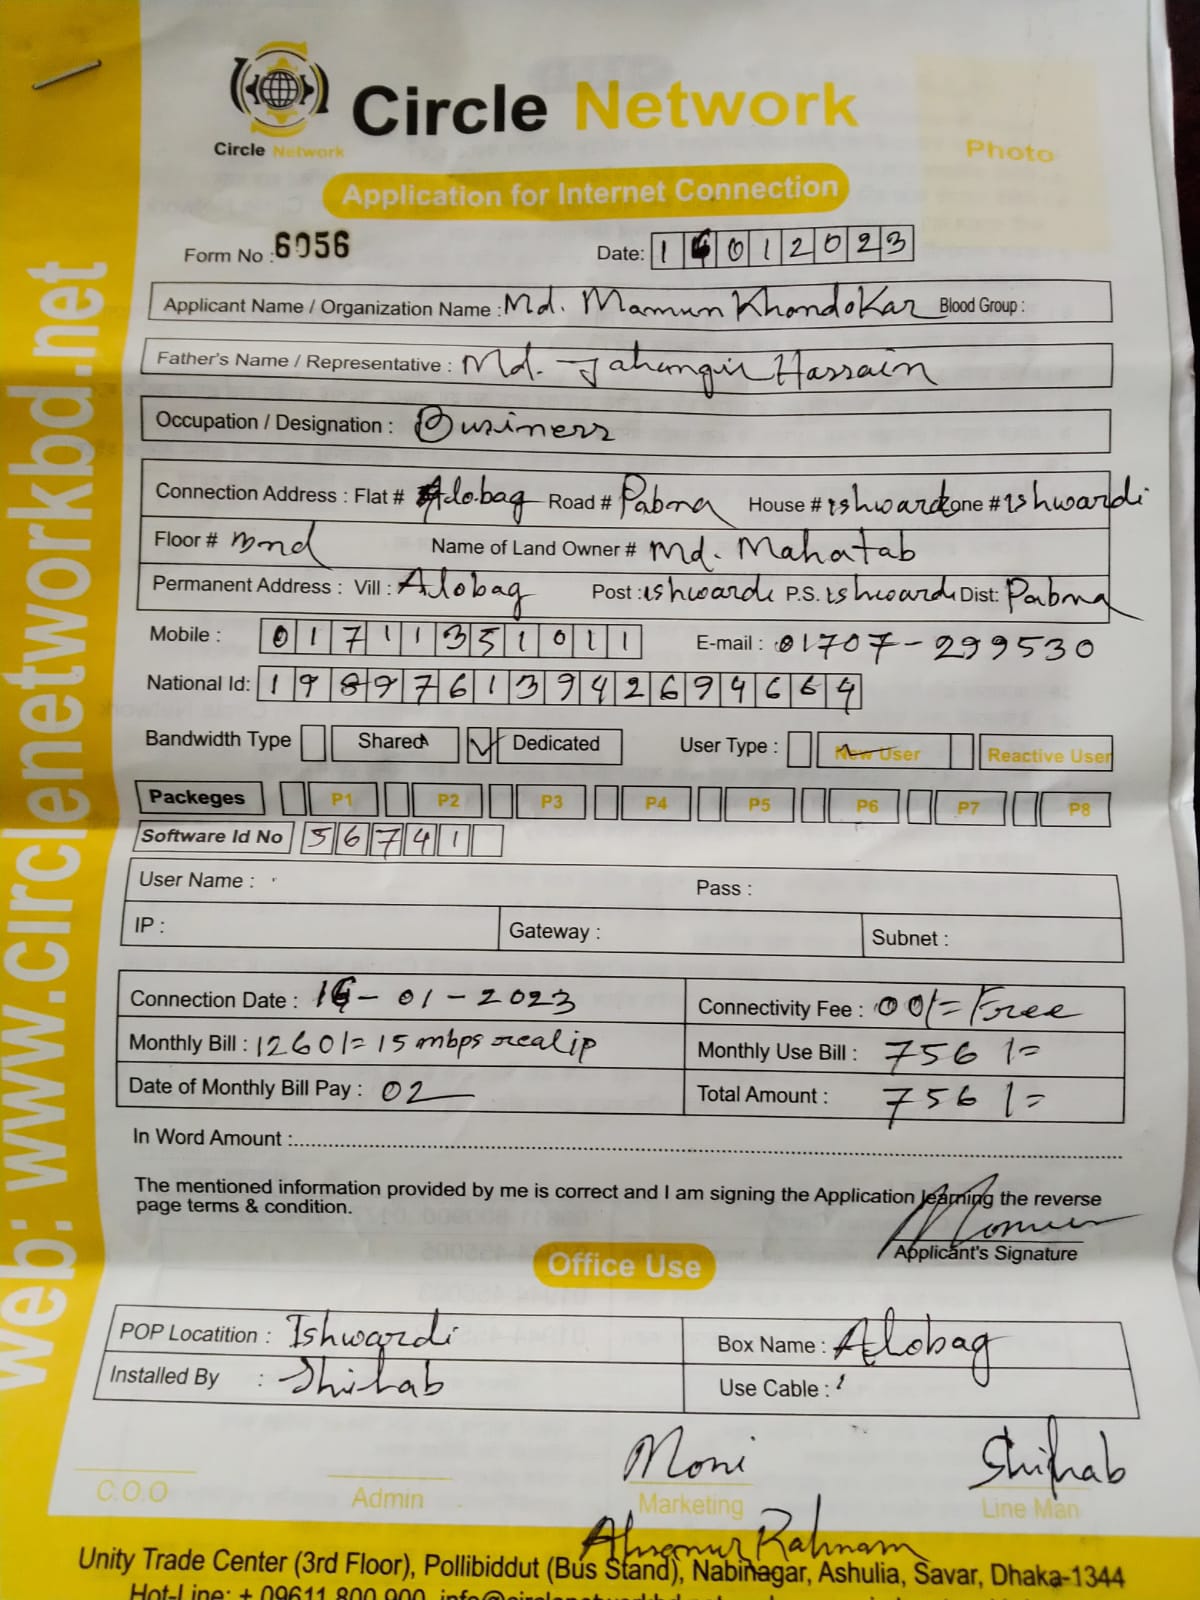 Circle Network
Circle Network
Photo
Application for Internet Connection
Form No : 6056
Date: 1 6 0 1 2 0 2 3
Applicant Name / Organization Name : Md. Mamun Khondokar Blood Group :
Father's Name / Representative : Md. Jahangir Hassain
Occupation / Designation : Business
Connection Address : Flat # Alobag Road # Pabna House # ishwardi Zone # ishwardi
Floor # Name of Land Owner # Md. Mahatab
Permanent Address : Vill : Alobag Post : ishwardi P.S. ishwardi Dist: Pabna
Mobile : 0 1 7 1 1 3 5 1 0 1 1 E-mail : 01707-299530
National Id: 1 9 8 9 7 6 1 3 9 4 2 6 9 4 6 6 4
Bandwidth Type Shared Dedicated User Type : New User Reactive User
Packeges P1 P2 P3 P4 P5 P6 P7 P8
Software Id No 5 6 7 4 1
User Name : Pass :
IP : Gateway : Subnet :
Connection Date : 16-01-2023 Connectivity Fee : 00/= Free
Monthly Bill : 1260/= 15 mbps real ip Monthly Use Bill : 756/=
Date of Monthly Bill Pay : 02 Total Amount : 756/=
In Word Amount :
The mentioned information provided by me is correct and I am signing the Application learning the reverse
page terms & condition.
Mamun
Applicant's Signature
Office Use
POP Locatition : Ishwardi Box Name : Alobag
Installed By : Shihab Use Cable :
Moni Shihab
C.O.O Admin Marketing Line Man
Rahman
Unity Trade Center (3rd Floor), Pollibiddut (Bus Stand), Nabinagar, Ashulia, Savar, Dhaka-1344
Hot-Line: + 09611 800 900,
web: www.circlenetworkbd.net